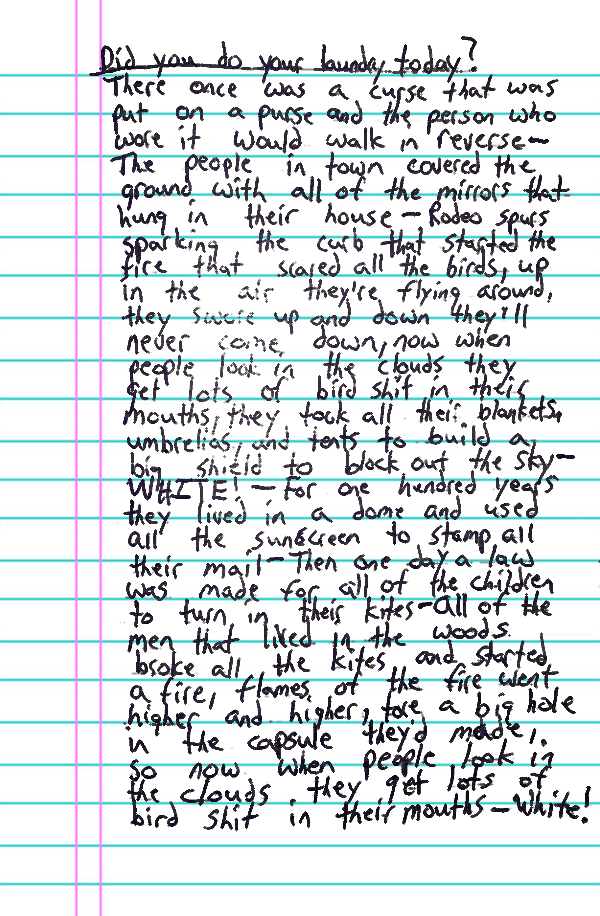 Did you do your launday today?
There once was a curse that was
put on a purse and the person who
wore it would walk in reverse—
The people in town covered the
ground with all of the mirrors that
hung in their house — Rodeo spurs
sparking the curb that started the
fire that scared all the birds, up
in the air they're flying around,
they swore up and down they'll
never come down, now when
people look in the clouds they
get lots of bird shit in their
mouths, they took all their blankets,
umbrellas, and tents to build a
big shield to block out the sky—
WHITE! — For one hundred years
they lived in a dome and used
all the sunscreen to stamp all
their mail — Then one day a law
was made for all of the children
to turn in their kites — all of the
men that lived in the woods
broke all the kites and started
a fire, flames of the fire went
higher and higher, tore a big hole
in the capsule they'd made,
so now when people look in
the clouds they get lots of
bird shit in their mouths — White!